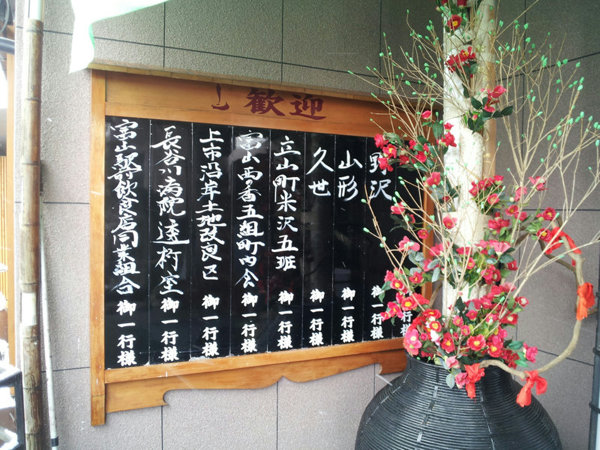 歓迎
野沢 御一行様
山形 御一行様
久世 御一行様
立山町米沢五班 御一行様
富山西番五組町内会 御一行様
上市沿岸土地改良区 御一行様
長谷川病院透析室 御一行様
富山駅前飲食店同業組合 御一行様